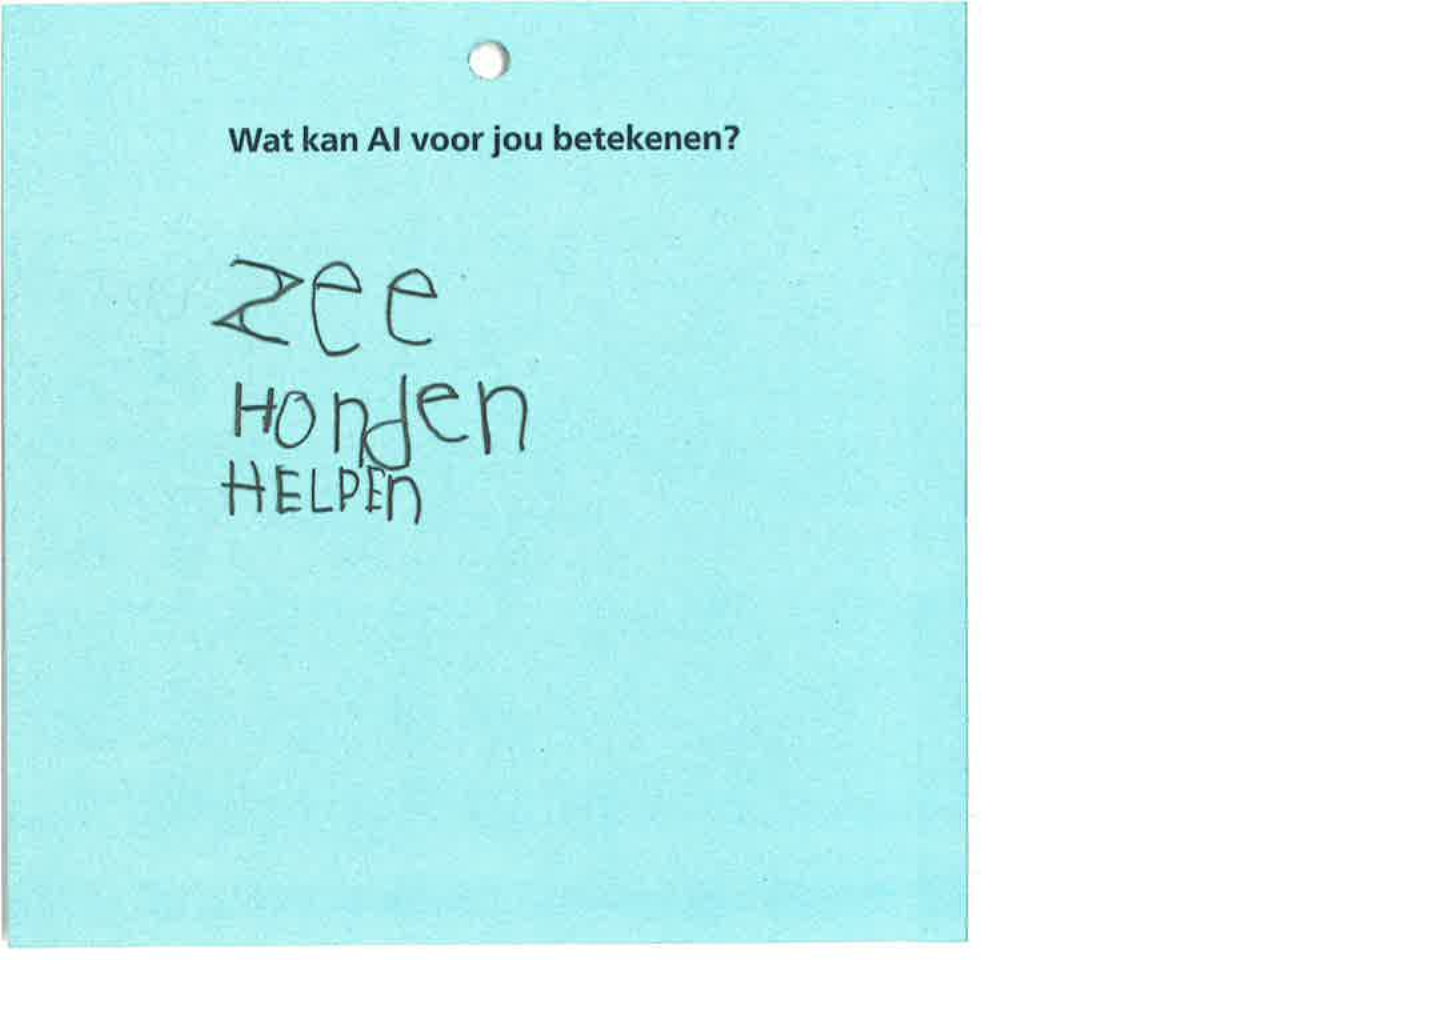 Wat kan AI voor jou betekenen?
zee
Honden
HELPEn